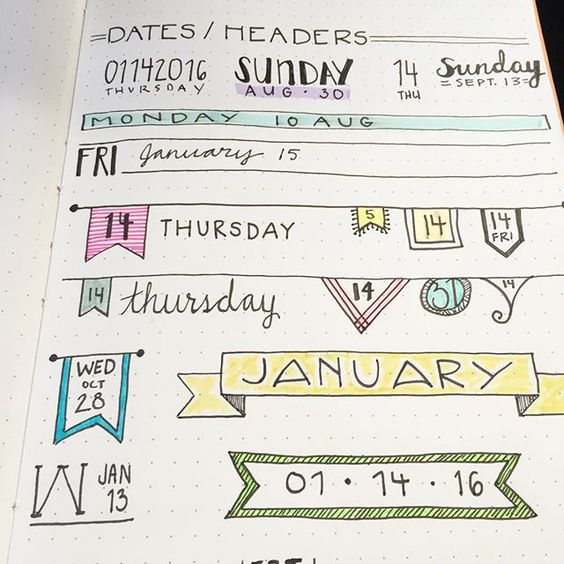 DATES / HEADERS
01142016 SUNDAY 14 Sunday
THURSDAY AUG · 30 THU SEPT. 13
MONDAY 10 AUG
FRI January 15
14 THURSDAY 5 14 14
FRI
14 thursday 14 31 14
WED
OCT
28
JANUARY
W JAN
13
01 · 14 · 16